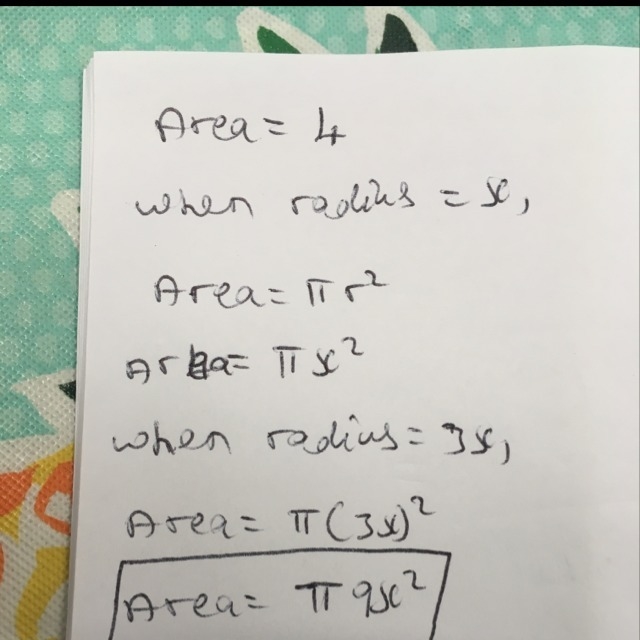 Area = 4
when radius = x,
Area = πr²
Area = πx²
when radius = 3x,
Area = π(3x)²
Area = π9x²